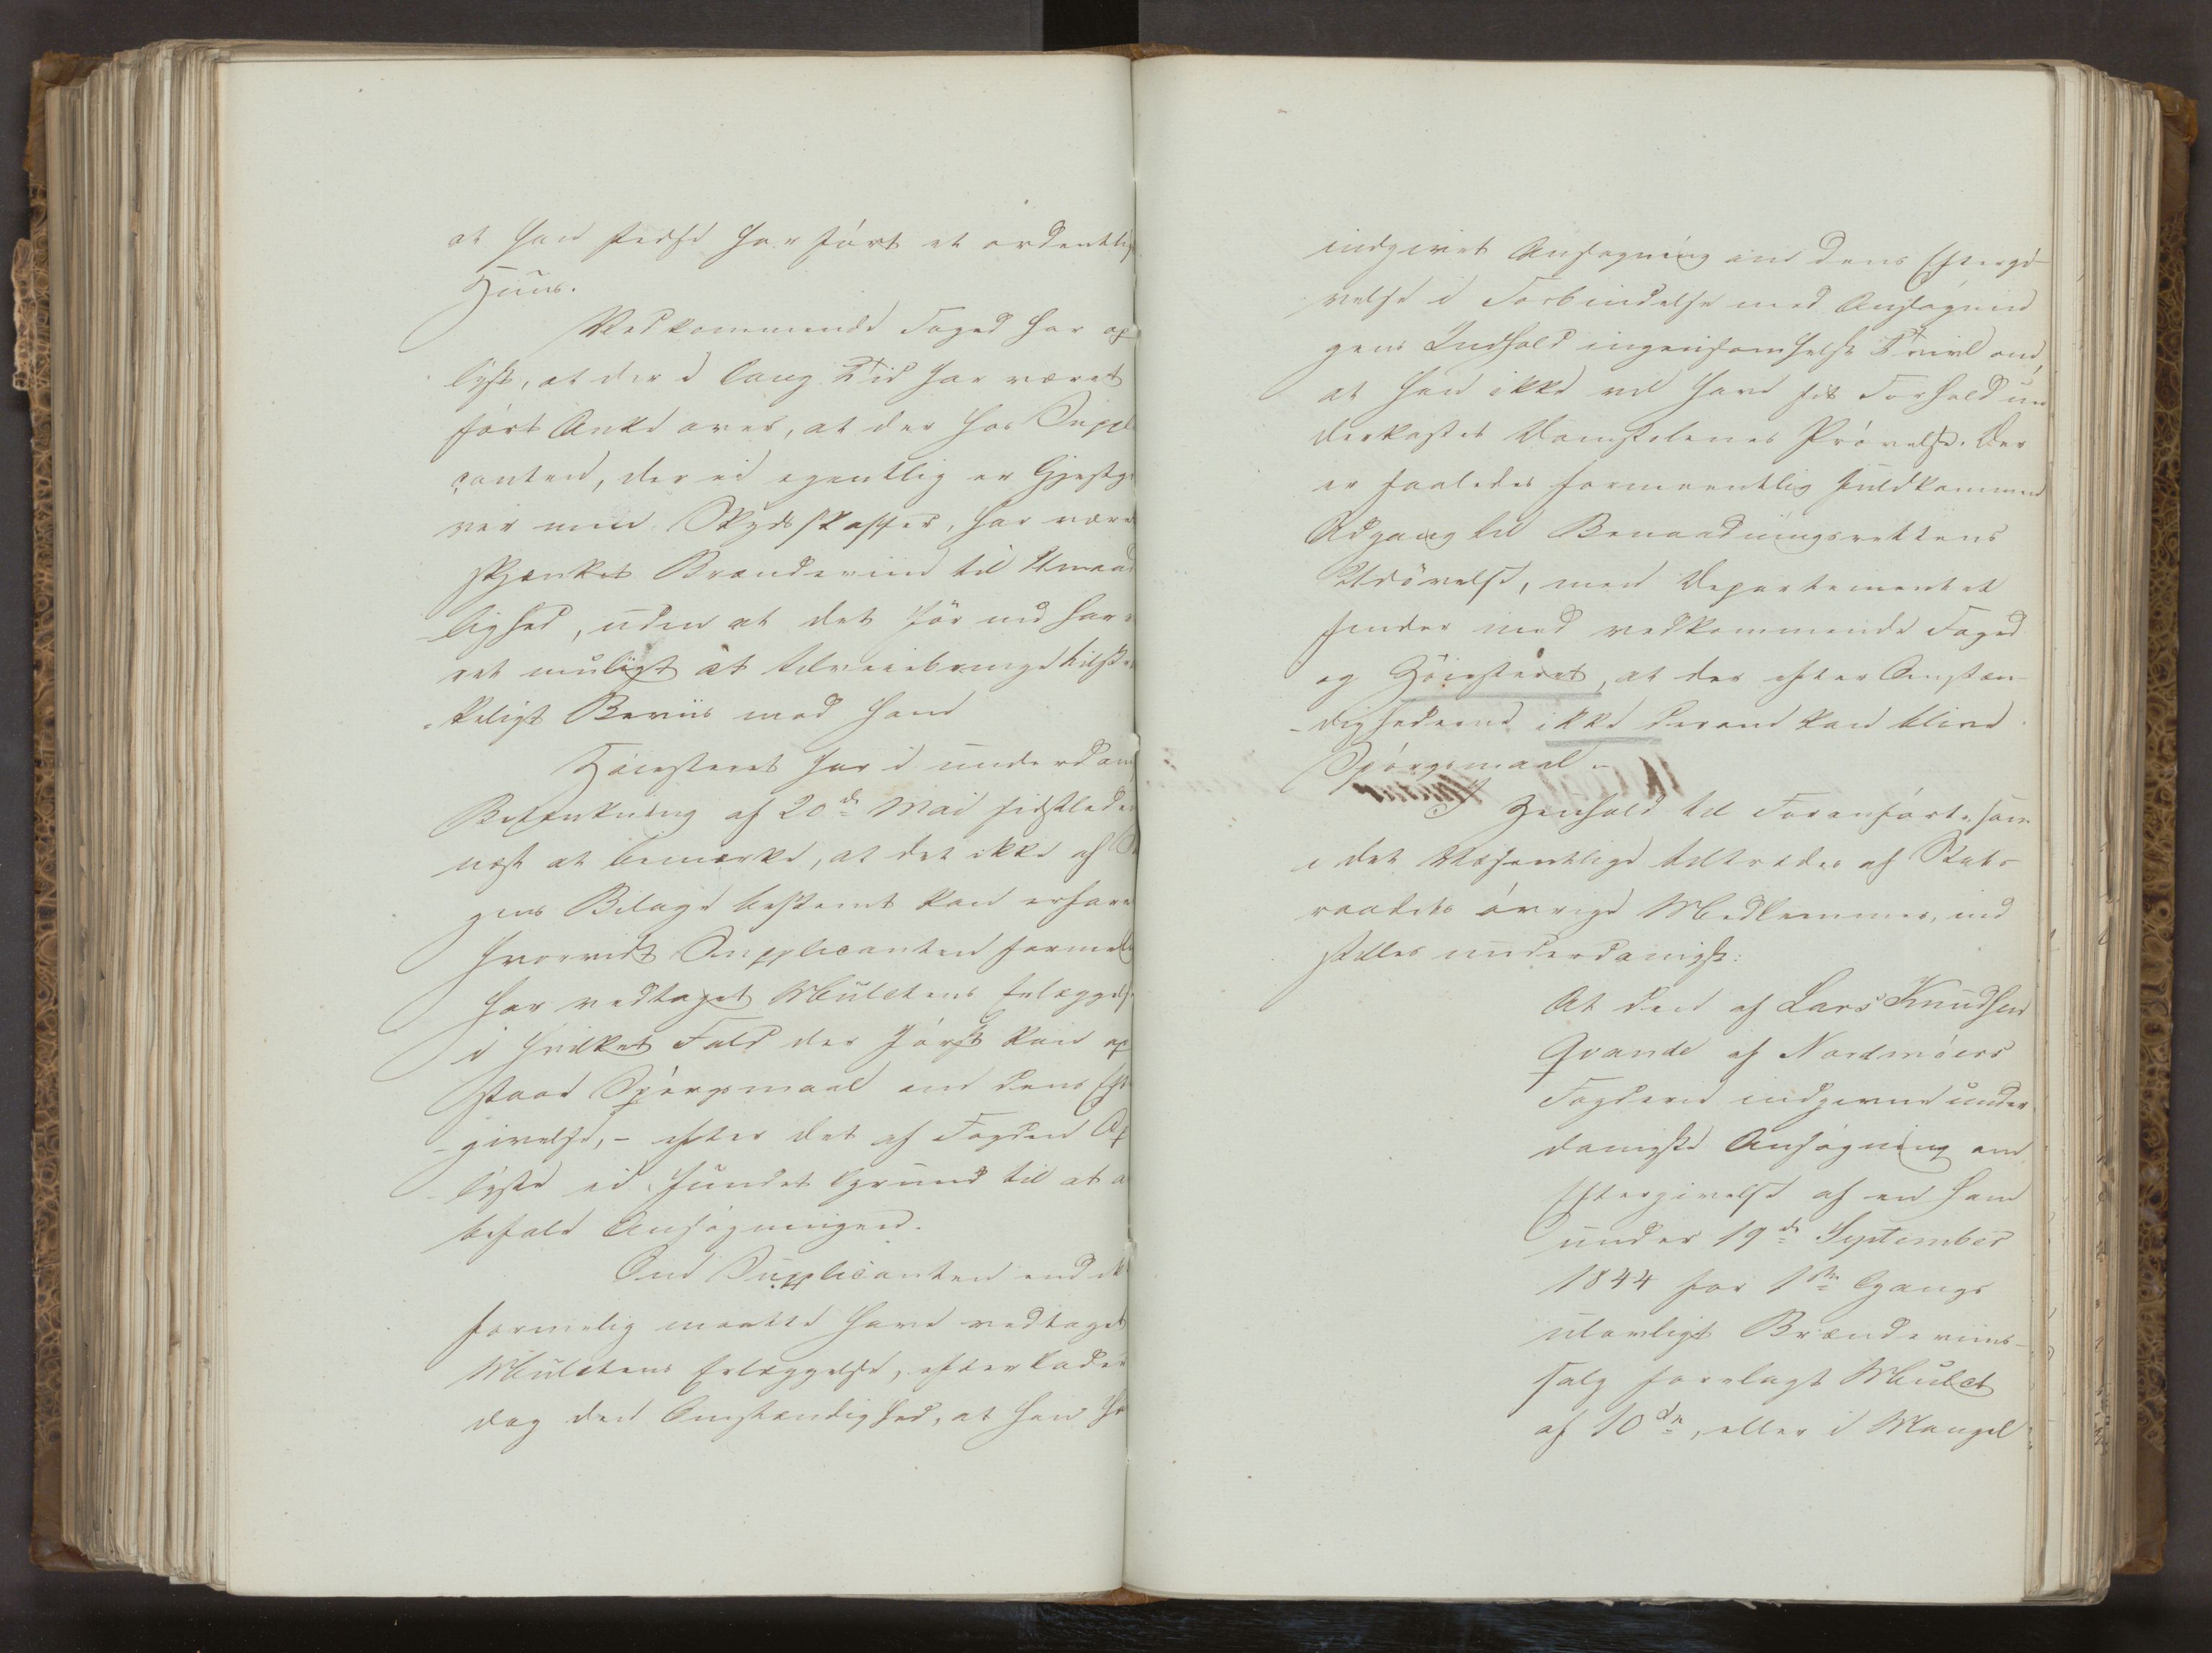 at han stedse har ført et ordentligt
Huus.
Vedkommende Foged har op
lyst, at der i lang Tid har været
ført Anke over, at der hos Suppli
canten, der ei egentlig er Gjestgi
ver men Skydsskaffer, har været
skjænket Brændeviin til Umaade
lighed, uden at det før nu har væ
ret muligt at tilveiebringe tilstræ
kkeligt Beviis mod ham
Høiesteret har i underdanig
Betænkning af 20de Mai sidstleden
næst at bemærke, at det ikke af Sa
gens Bilage bestemt kan erfares
hvorvidt Supplicanten formelig
har vedtaget Mulctens Erlæggelse
i hvilket Fald der først kan op
staae Spørgsmaal om dens Efter
givelse, – efter det af Fogden Op
lyste ei fundet Grund til at an
befale Ansøgningen.
Om Supplicanten end ikke
formelig maatte have vedtaget
Mulctens Erlæggelse, efterlader
dog den Omstændighed, at han har
indgivet Ansøgning om dens Eftergi
velse i Forbindelse med Ansøgnin
gens Indhold ingensomhelst Tvivl om,
at han ikke vil have sit Forhold un
derkastet Domstolenes Prøvelse. Der
er saaledes formeentlig fuldkommen
Adgang til Benaadningsrettens
Udøvelse, men Departementet
finder med vedkommende Foged
og Høiesteret, at der efter Omstæn
dighederne ikke derom kan blive
Spørgsmaal.
I Henhold til Foranførte, som
i det Væsentlige tiltrædes af Stats
raadets øvrige Medlemmer, ind
stilles underdanigst:
At den af Lars Knudsen
Qvande af Nordmøers
Fogderie indgivne under
danigste Ansøgning om
Eftergivelse af en ham
under 19de September
1844 for 1ste Gangs
ulovligt Brændeviins-
salg forelagt Mulct
af 10 dr, eller i Mangel